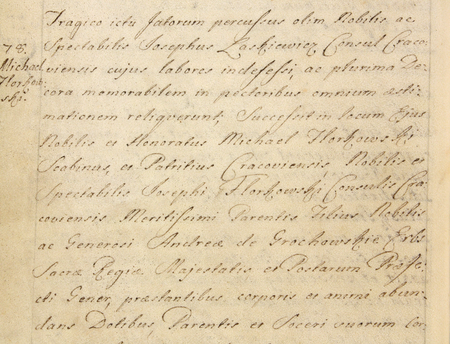 Tragico ictu fatorum percussus olim Nobilis ac
78.
Michael
Florkow-
ski.
Spectabilis Josephus Laskiewicz Consul Craco-
viensis cujus labores indefessi, ac plurima De-
cora memorabilem in pectoribus omnium aesti-
mationem reliquerunt, Successit in locum Ejus
Nobilis et Honoratus Michael Florkowski
Scabinus, et Patritius Cracoviensis Nobilis et
Spectabilis Josephi Florkowski Consulis Cra-
coviensis Meritissimi Parentis Filius Nobilis
ac Generosi Andreæ de Grochowskie
Sacræ Regiæ Majestatis et Postarum Præfe-
cti Gener, præstantibus corporis et animi abun-
dans Dotibus, Parentis et Soceri suorum